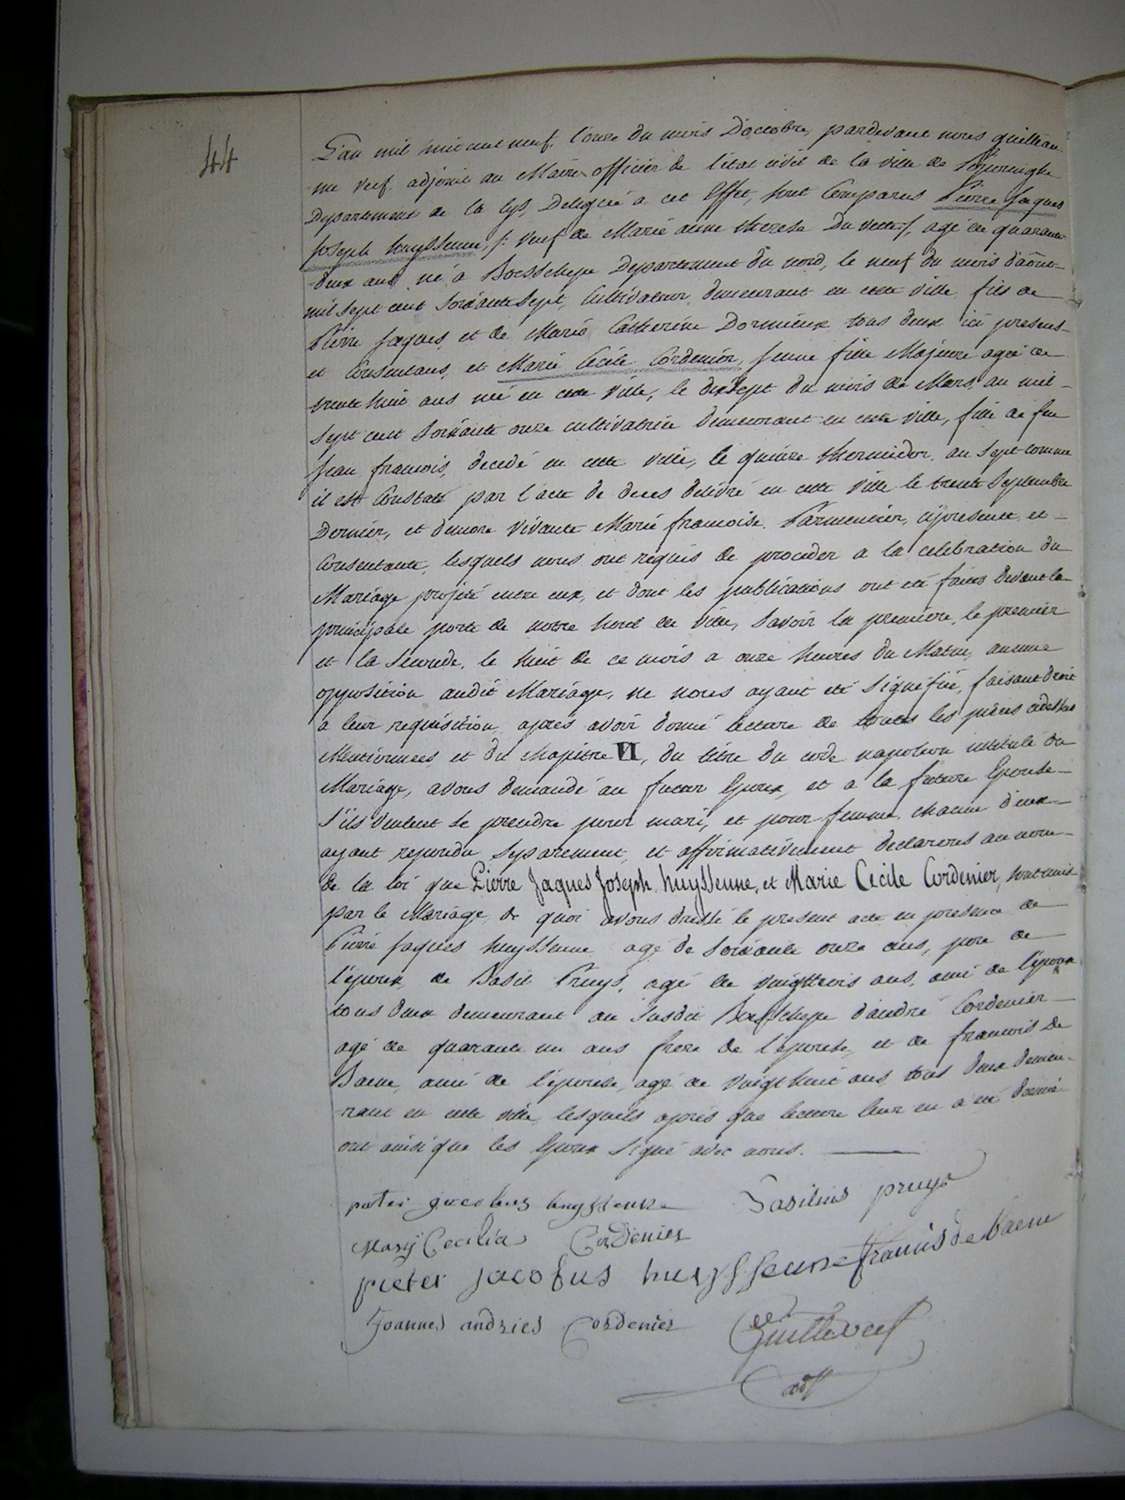 44
L'an mil huit cent neuf, l'onze du mois D'octobre, pardevant nous guillau-
me veuf adjoint au Maire officier de l'etat civil de la ville de
Departement de la Lys, Delegué a cet Effet, sont Comparus Pierre Jaques
Joseph huyssenne, /: veuf de Marie anne therese Du /, agé de quarante
deux ans né a Boesschepe Departement du nord, le neuf du mois d'aout
mil sept cent soixante sept, Cultivateur demeurant en cette ville fils de
Pierre Jaques, et de Marie Catherine Dormieux tous deux ici presens
et Consentans, et Marie Cecile Cordenier, jeune fille Majeure agée de
trente huit ans née en cette ville, le dixsept du mois de Mars, an mil
sept cent soixante onze cultivatrice demeurant en cette ville, fille de feu
Jean francois, decedé en cette ville, le quinze thermidor, an sept comme
il est Constaté par l'acte de deces delivré en cette ville le trente Septembre
Dernier, et d'encore vivante Marie francoise Parmentier, cipresente et
Consentante, lesquels nous ont requis de proceder a la celebration du
Mariage projeté entre eux, et dont les publications ont été faites devant la
principale porte de notre hotel de ville, Savoir la premiere, le premier
et la seconde, le huit de ce mois a onze heures du Matin, aucune
opposition audit Mariage, ne nous ayant été signifié, faisant droit
a leur requisition, apres avoir donné lecture de toutes les pieces cidessus
Mentionnees et du Chapitre VI, du titre du code napoleon intitulé du
Mariage, avons demandé au futur Epoux, et a la future Epouse
s'ils veulent se prendre pour mari, et pour femme, chacun d'eux
ayant repondu separement, et affirmativement declarons au nom
de la loi que Pierre Jaques Joseph, huyssenne, et Marie Cecile Cordenier, sont unis
par le Mariage de quoi avons dressé le present acte en presence de
Pierre Jaques huyssenne agé de soixante onze ans, pere de
l'epoux, de Basile Pruys, agé de vingttrois ans, ami de l'epoux
tous deux demeurant au susdit Boesschepe d'andré Cordenier
agé de quarante un ans frere de l'epouse, et de francois De
Baene, ami de l'epouse, agé de vingt huit ans, tous deux demeu-
rant en cette ville, lesquels apres que lecture leur en a été donné
ont ainsi que les Epoux signé avec nous.
pieter jacobus huyssenne Basilius pruys
Marij Cecilia Cordenier
pieter jacobus huyssenne francis de baene
Joannes andries Cordenier Guille veuf
adjt